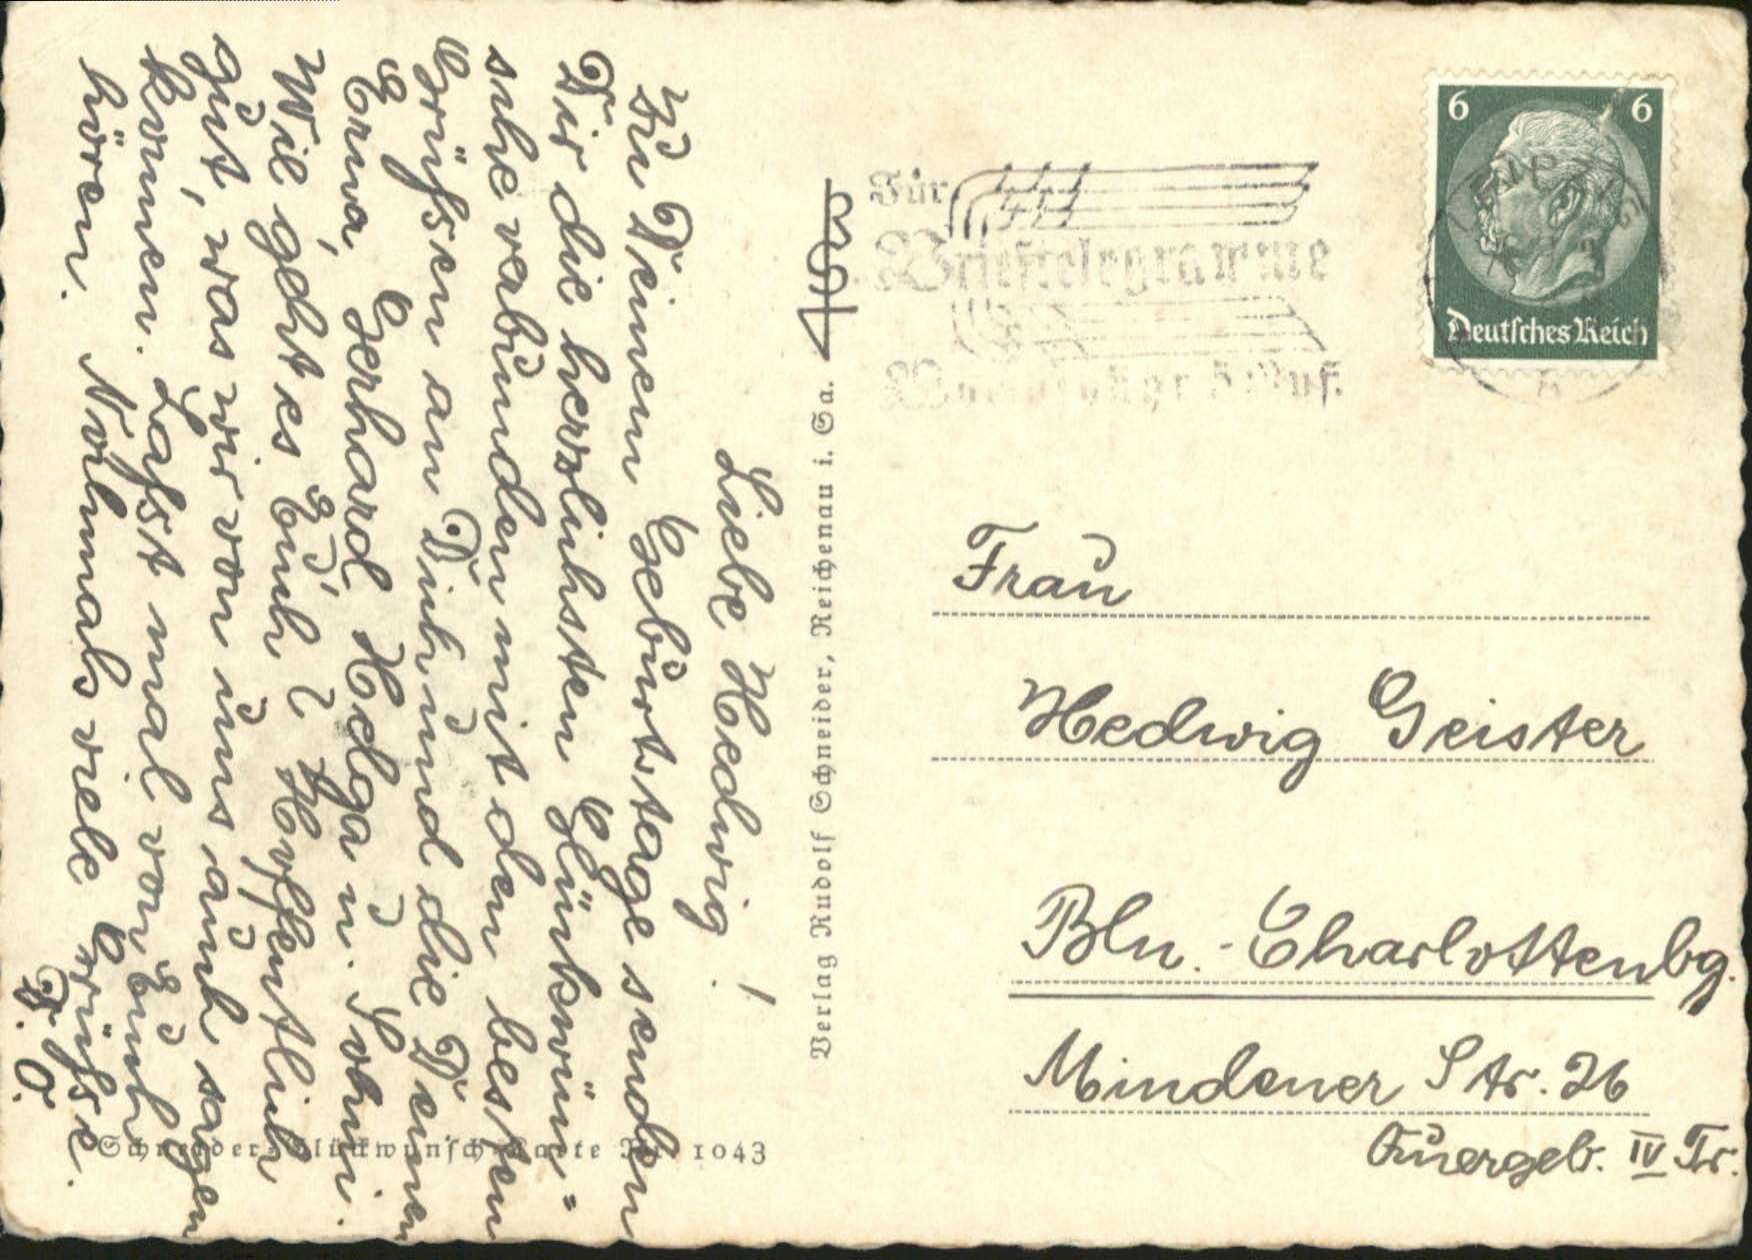 Liebe Hedwig!
Zu Deinem Geburtstage senden
Dir die herzlichsten Glückwün=
sche verbunden mit den besten
Grüßen an Dich und die Deinen
Erna, Gerhard, Helga u. Sohni.
Wie geht es Euch? Hoffentlich
gut, was wir von uns auch sagen
können. Laßt mal von Euch
hören. Nochmals viele Grüße.
D. O.
Schneider-Glückwunsch-Karte Nr. 1043
Verlag Rudolf Schneider, Reichenau i. Sa.
Für
Brieftelegramme
6 6
Deutsches Reich
LEIPZIG
Frau
Hedwig Geister
Bln.-Charlottenbg.
Mindener Str. 26
Quergeb. IV Tr.